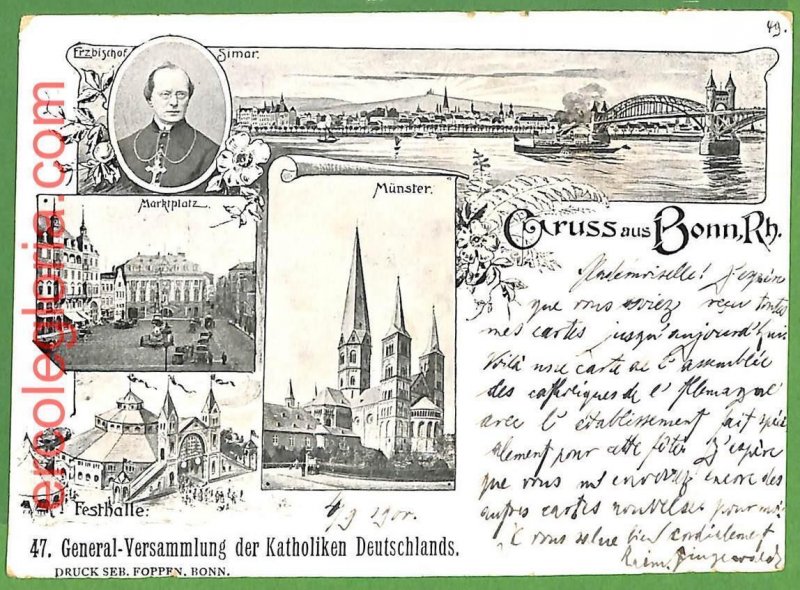 49.
Erzbischof Simar.
Marktplatz
Münster.
Gruss aus Bonn, Rh.
Mademoiselle! J'espère
que vous avez reçu toutes
mes cartes jusqu'aujourd'hui.
Voilà une carte de l'assemblée
des catholiques de l'Allemagne
avec l'établissement fait spéci
alement pour cette fête. J'espère
que vous m'enverrez encore des
autres cartes nouvelles pour moi
Je vous salue bien cordialement
Festhalle:
4/9 1900.
47. General-Versammlung der Katholiken Deutschlands.
DRUCK SEB. FOPPEN, BONN.
ercolegloria.com